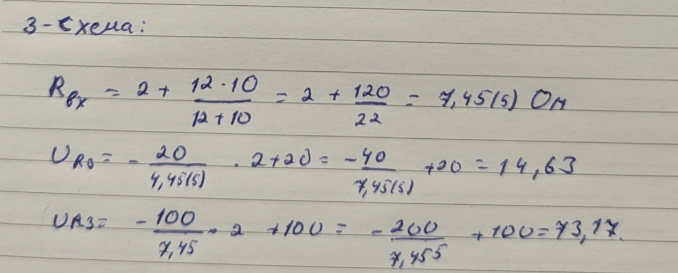 3-схема:
Rвх = 2 + 12·10/12+10 = 2 + 120/22 = 7,45(5) Ом
UR0 = - 20/4,45(5) · 2+20 = -40/7,45(5) +20 = 14,63
UR3 = - 100/7,45 · 2 +100 = - 200/7,455 +100 = 73,17.